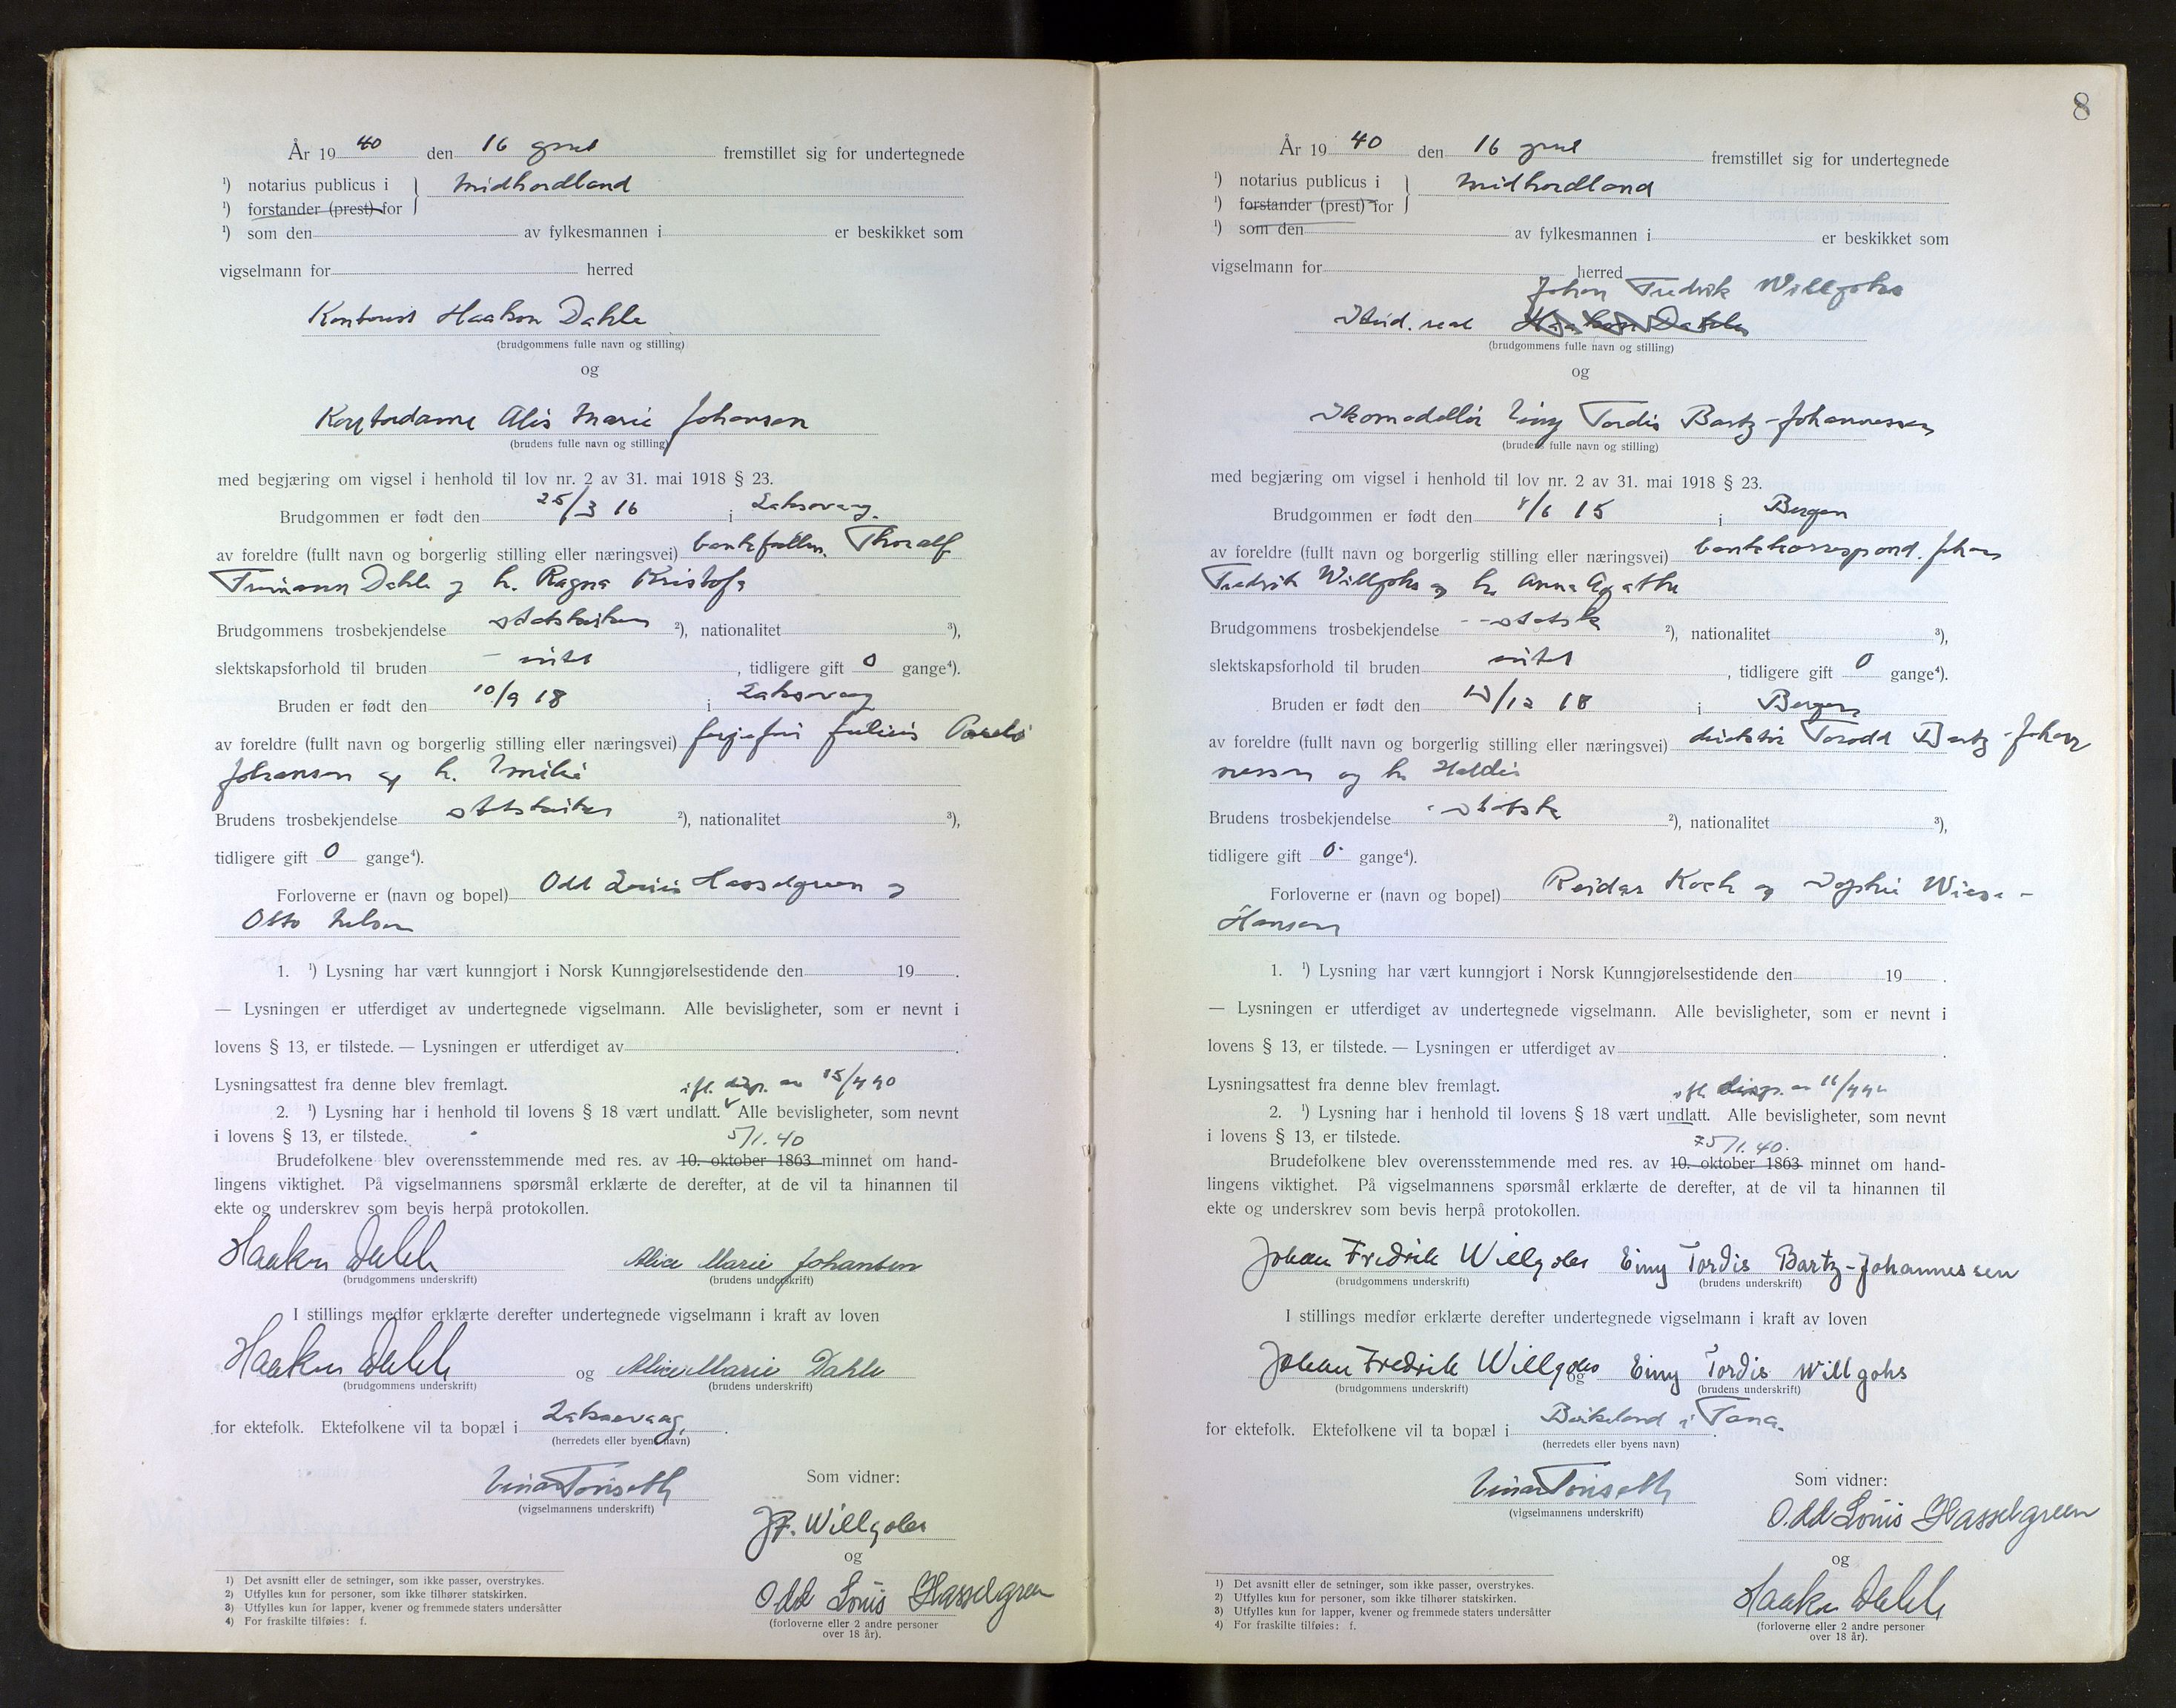 År 1940 den 16 april fremstillet sig for undertegnede
¹) notarius publicus i } Midhordland
¹) forstander (prest) for
¹) som den av fylkesmannen i er beskikket som
vigselmann for herred
Kontorist Haakon Dahle
(brudgommens fulle navn og stilling)
og
Kontordame Alis Marie Johansen
(brudens fulle navn og stilling)
med begjæring om vigsel i henhold til lov nr. 2 av 31. mai 1918 § 23.
Brudgommen er født den 25/3 16 i Laksevaag.
av foreldre (fullt navn og borgerlig stilling eller næringsvei) bankfullm. Thoralf
Dahle og h. Ragna Kristofa
Brudgommens trosbekjendelse statskirken ²), nationalitet ³),
slektskapsforhold til bruden - intet, tidligere gift 0 gange⁴).
Bruden er født den 10/9 18 i Laksevaag
av foreldre (fullt navn og borgerlig stilling eller næringsvei) Julius
Johansen og h. Emilie
Brudens trosbekjendelse statskirken ²), nationalitet ³),
tidligere gift 0 gange⁴).
Forloverne er (navn og bopel) Odd Louis Hasselgreen og
Otto Nelson
1. ¹) Lysning har vært kunngjort i Norsk Kunngjørelsestidende den 19 .
— Lysningen er utferdiget av undertegnede vigselmann. Alle bevisligheter, som er nevnt i
lovens § 13, er tilstede. — Lysningen er utferdiget av .
Lysningsattest fra denne blev fremlagt. ifl. disp. av 15/4 40
2. ¹) Lysning har i henhold til lovens § 18 vært undlatt. Alle bevisligheter, som nevnt
i lovens § 13, er tilstede. 5/1. 40
Brudefolkene blev overensstemmende med res. av 10. oktober 1863 minnet om hand-
lingens viktighet. På vigselmannens spørsmål erklærte de derefter, at de vil ta hinannen til
ekte og underskrev som bevis herpå protokollen.
Haakon Dahle Alice Marie Johansen
(brudgommens underskrift) (brudens underskrift)
I stillings medfør erklærte derefter undertegnede vigselmann i kraft av loven
Haakon Dahle og Alice Marie Dahle
(brudgommens underskrift) (brudens underskrift)
for ektefolk. Ektefolkene vil ta bopæl i Laksevaag.
(herredets eller byens navn)
Einar Tønseth
(vigselmannens underskrift)
Som vidner:
J.F. Willgohs
og
Odd Louis Hasselgreen
(forloverne eller 2 andre personer
over 18 år).
1) Det avsnitt eller de setninger, som ikke passer, overstrykes.
2) Utfylles kun for personer, som ikke tilhører statskirken.
3) Utfylles kun for lapper, kvener og fremmede staters undersåtter
4) For fraskilte tilføies: f.
8
År 1940 den 16 april fremstillet sig for undertegnede
¹) notarius publicus i } Midhordland
¹) forstander (prest) for
¹) som den av fylkesmannen i er beskikket som
vigselmann for herred
Johan Fredrik Willgohs
Stud. real Haakon Dahle
(brudgommens fulle navn og stilling)
og
Einy Tordis Bartz-Johannessen
(brudens fulle navn og stilling)
med begjæring om vigsel i henhold til lov nr. 2 av 31. mai 1918 § 23.
Brudgommen er født den /6 15 i Bergen
av foreldre (fullt navn og borgerlig stilling eller næringsvei) bankkorrespond. Johan
Fredrik Willgohs og h. Anna Agathe
Brudgommens trosbekjendelse --statsk ²), nationalitet ³),
slektskapsforhold til bruden intet, tidligere gift 0 gange⁴).
Bruden er født den /12 18 i Bergen
av foreldre (fullt navn og borgerlig stilling eller næringsvei) direktør Torodd Bartz-Johan
nessen og h. Haldis
Brudens trosbekjendelse statsk ²), nationalitet ³),
tidligere gift 0 gange⁴).
Forloverne er (navn og bopel) Reidar Koch og Sophie Wiese-
Hansen
1. ¹) Lysning har vært kunngjort i Norsk Kunngjørelsestidende den 19 .
— Lysningen er utferdiget av undertegnede vigselmann. Alle bevisligheter, som er nevnt i
lovens § 13, er tilstede. — Lysningen er utferdiget av .
Lysningsattest fra denne blev fremlagt. ifl. disp. av 16/4 40
2. ¹) Lysning har i henhold til lovens § 18 vært undlatt. Alle bevisligheter, som nevnt
i lovens § 13, er tilstede. 5/1. 40.
Brudefolkene blev overensstemmende med res. av 10. oktober 1863 minnet om hand-
lingens viktighet. På vigselmannens spørsmål erklærte de derefter, at de vil ta hinannen til
ekte og underskrev som bevis herpå protokollen.
Johan Fredrik Willgohs Einy Tordis Bartz-Johannessen
(brudgommens underskrift) (brudens underskrift)
I stillings medfør erklærte derefter undertegnede vigselmann i kraft av loven
Johan Fredrik Willgohs og Einy Tordis Willgohs
(brudgommens underskrift) (brudens underskrift)
for ektefolk. Ektefolkene vil ta bopæl i Birkeland i Fana.
(herredets eller byens navn)
Einar Tønseth
(vigselmannens underskrift)
Som vidner:
Odd Louis Hasselgreen
og
Haakon Dahle
(forloverne eller 2 andre personer
over 18 år).
1) Det avsnitt eller de setninger, som ikke passer, overstrykes.
2) Utfylles kun for personer, som ikke tilhører statskirken.
3) Utfylles kun for lapper, kvener og fremmede staters undersåtter
4) For fraskilte tilføies: f.